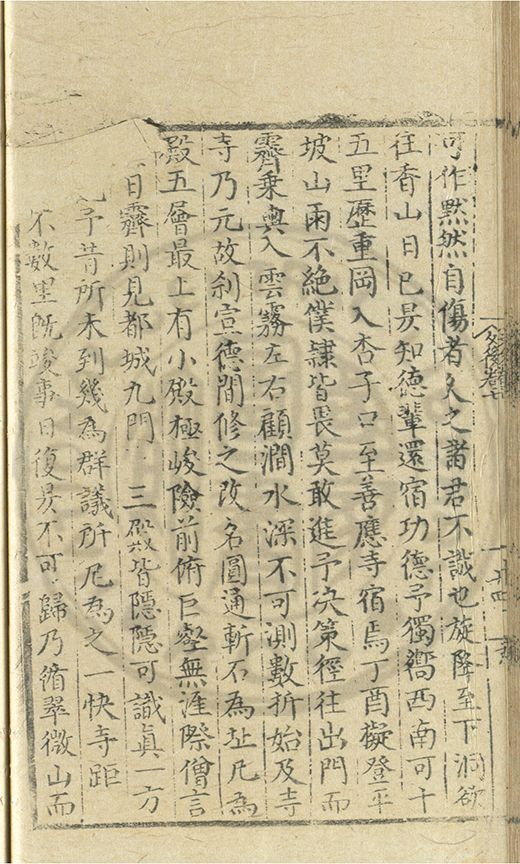 可作黙然自傷者久之諸君不識也旋降至下洞欲
往香山日已昃知德輩還宿功德予獨嚮西南可十
五里歷重岡入杏子口至善應寺宿焉丁酉擬登平
坡山雨不絶僕隸皆畏莫敢進予决策徑往出門而
霽乗輿入雲霧左右顧澗水深不可測數折始及寺
寺乃元故刹宣德間修之改名圓通斬石為址凡為
殿五層最上有小殿極峻險前俯巨壑無涯際僧言
日霽則見都城九門 三殿皆隱隱可識真一方
予昔所未到幾為群議所尼為之一快寺距
不數里既竣事日復昃不可歸乃循翠微山而